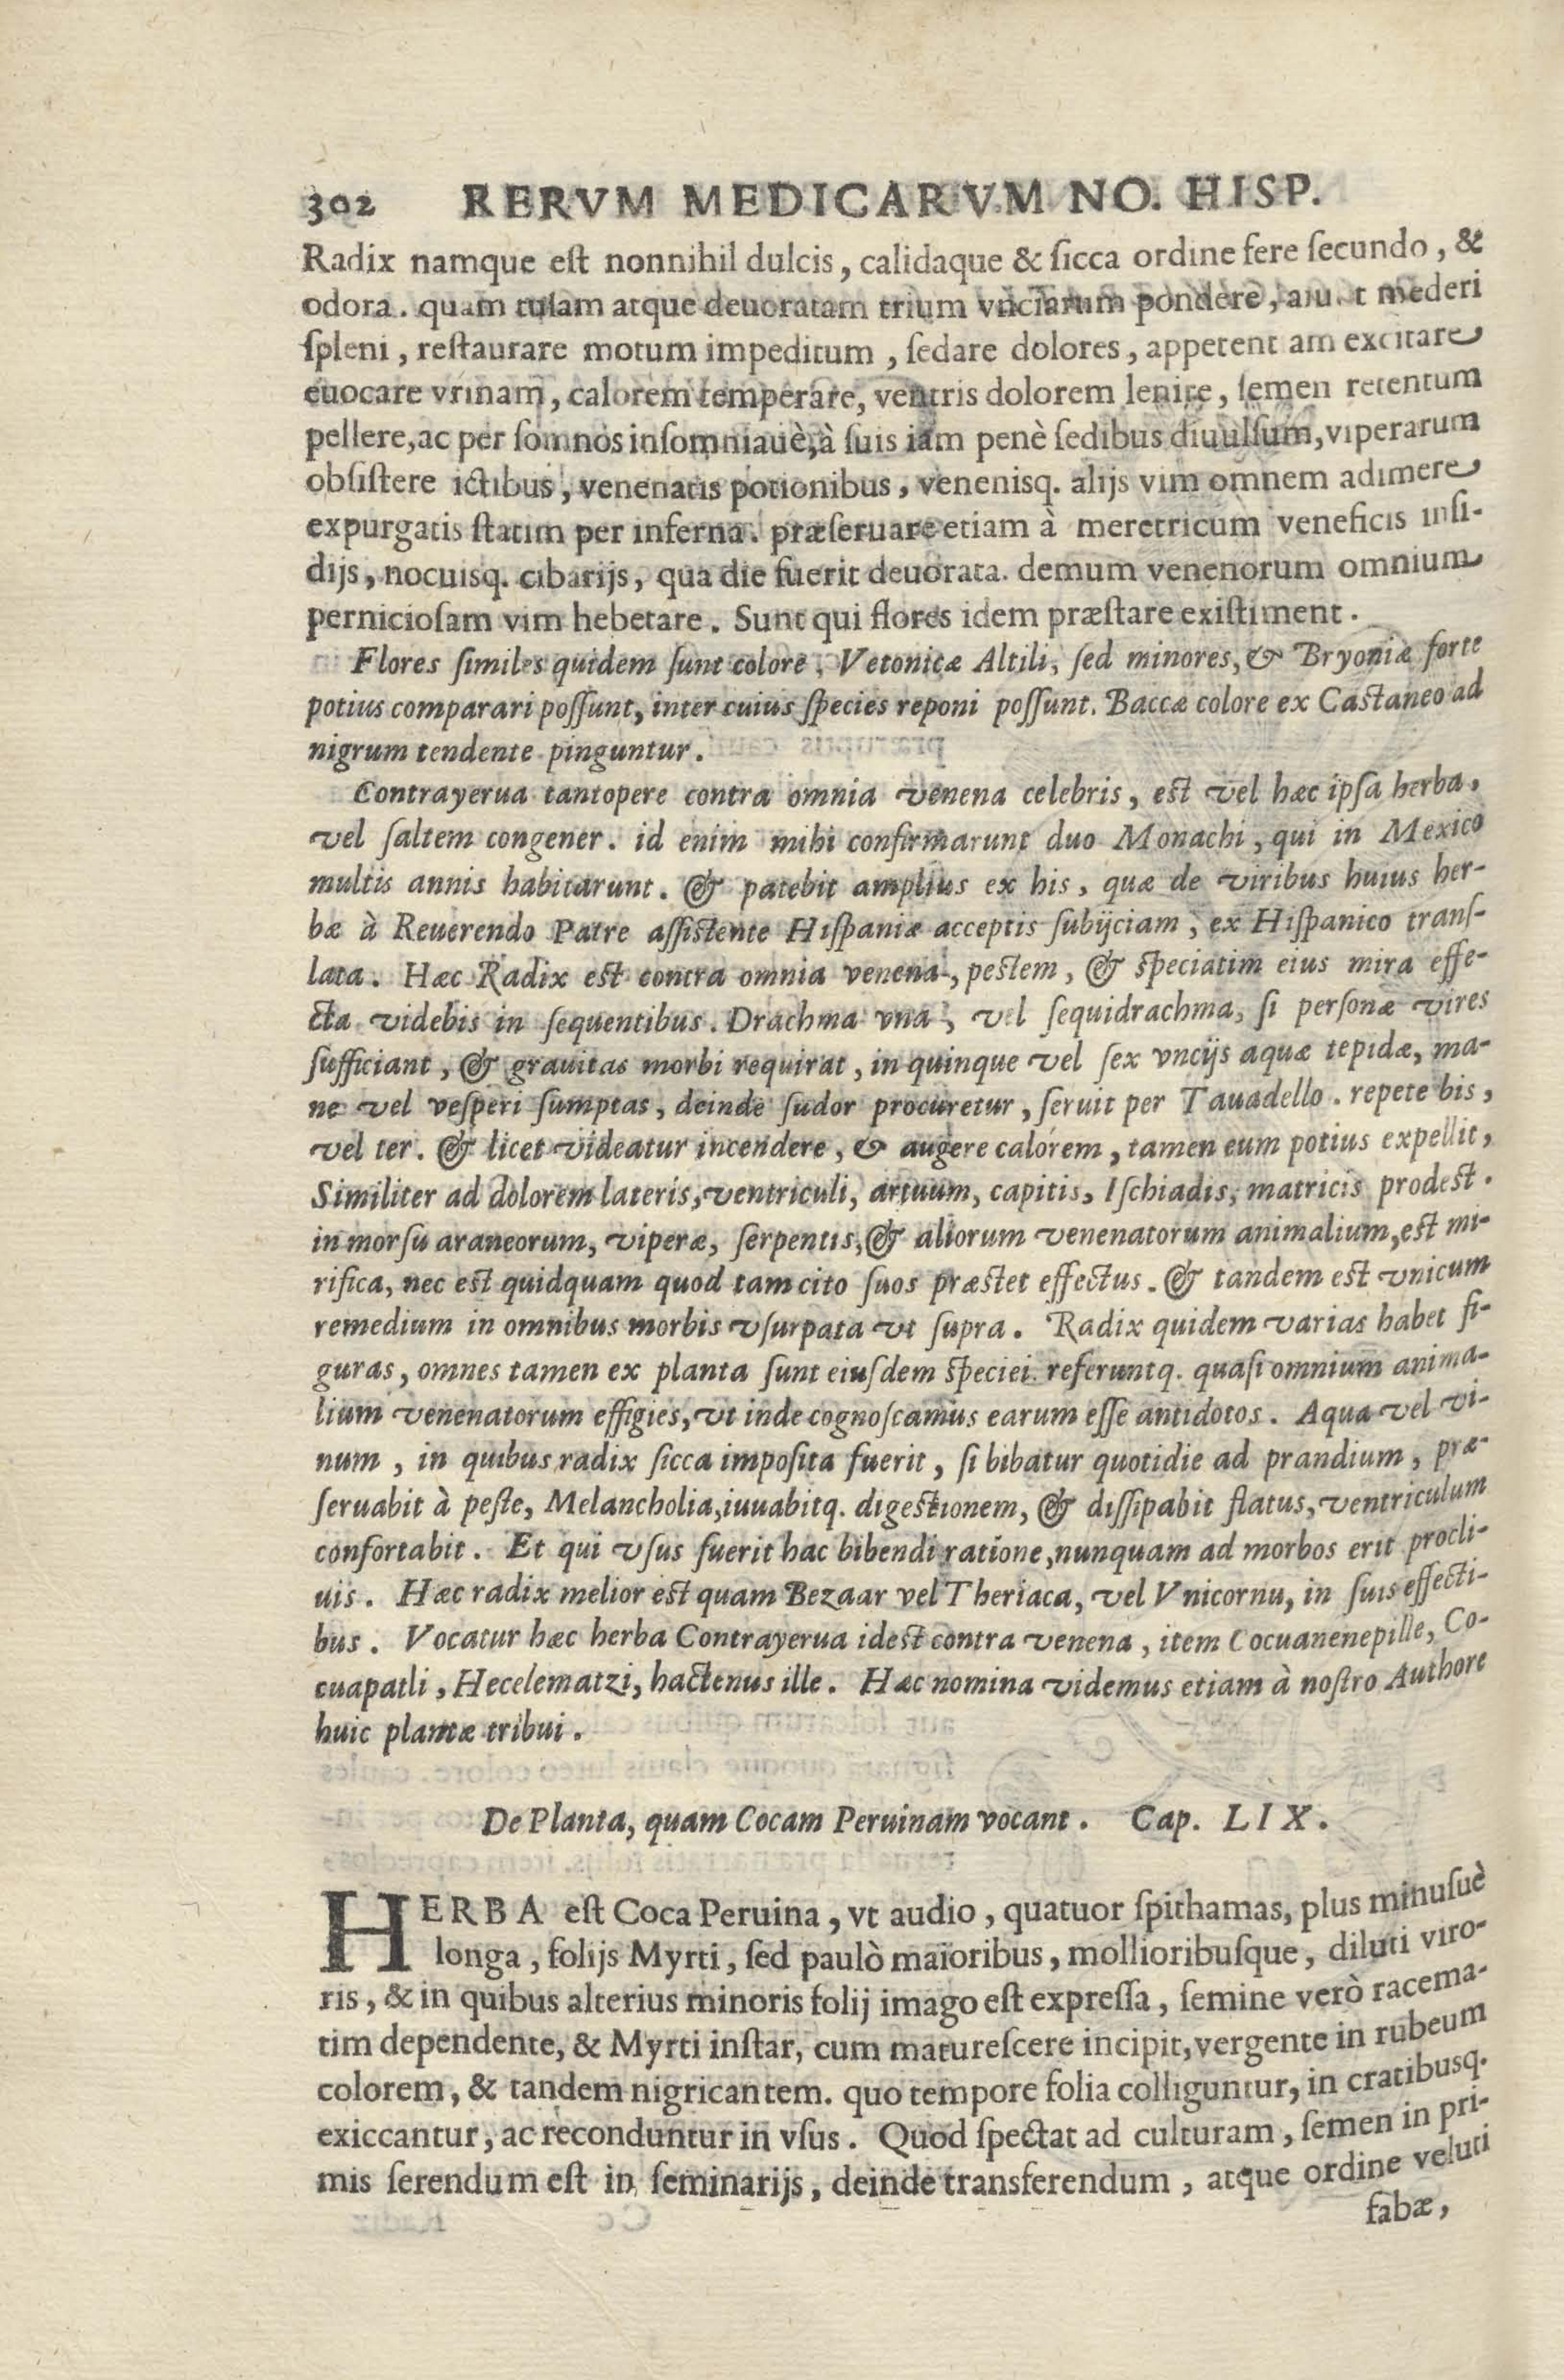 302 RERVM MEDICARVM NO. HISP.
Radix namque eſt nonnihil dulcis, calidaque & ſicca ordine fere ſecundo, &
odora. quam tuſam atque deuoratam trium vnciarum pondere, aiu t mederi
ſpleni, reſtaurare motum impeditum, ſedare dolores, appetent am excitare
euocare vrinam, calorem temperare, ventris dolorem lenire, ſemen retentum
pellere, ac per ſomnos inſomniauè, à ſuis iam penè ſedibus diuulſum, viperarum
obſiſtere ictibus, venenatis potionibus, venenisq. alijs vim omnem adimere
expurgatis ſtatim per inferna. præſeruare etiam à meretricum veneficis inſi-
dijs, nocuisq. cibarijs, qua die fuerit deuorata. demum venenorum omnium
pernicioſam vim hebetare. Sunt qui flores idem præſtare exiſtiment.
Flores ſimiles quidem ſunt colore, Vetonicæ Altili, ſed minores, & Bryoniæ forte
potius comparari poſſunt, inter cuius ſpecies reponi poſſunt. Baccæ colore ex Caſtaneo ad
nigrum tendente pinguntur.
Contrayerua tantopere contra omnia venena celebris, eſt vel hæc ipſa herba,
vel ſaltem congener. id enim mihi confirmarunt duo Monachi, qui in Mexico
multis annis habitarunt. & patebit amplius ex his, quæ de viribus huius her-
bæ à Reuerendo Patre aſſiſtente Hiſpaniæ acceptis ſubijciam, ex Hiſpanico tranſ-
lata. Hæc Radix eſt contra omnia venena, peſtem, & ſpeciatim eius mira effe-
cta videbis in ſequentibus. Drachma vna, vel ſequidrachma, ſi perſonæ vires
ſufficiant, & grauitas morbi requirat, in quinque vel ſex vncijs aquæ tepidæ, ma-
ne vel veſperi ſumptas, deinde ſudor procuretur, ſeruit per Tauadello. repete bis,
vel ter. & licet videatur incendere, & augere calórem, tamen eum potius expellit,
Similiter ad dolorem lateris, ventriculi, artuum, capitis, Iſchiadis, matricis prodeſt.
in morſu araneorum, viperæ, ſerpentis, & aliorum venenatorum animalium, eſt mi-
rifica, nec eſt quidquam quod tam cito ſuos præſtet effectus. & tandem eſt vnicum
remedium in omnibus morbis vſurpata vt ſupra. Radix quidem varias habet fi-
guras, omnes tamen ex planta ſunt eiuſdem ſpeciei. referuntq. quaſi omnium anima-
lium venenatorum effigies, vt inde cognoſcamus earum eſſe antidotos. Aqua vel vi-
num, in quibus radix ſicca impoſita fuerit, ſi bibatur quotidie ad prandium, præ-
ſeruabit à peſte, Melancholia, iuuabitq. digeſtionem, & diſſipabit flatus, ventriculum
confortabit. Et qui vſus fuerit hac bibendi ratione, nunquam ad morbos erit procli-
uis. Hæc radix melior eſt quam Bezaar vel Theriaca, vel Vnicornu, in ſuis effecti-
bus. Vocatur hæc herba Contrayerua ideſt contra venena, item Cocuanenepille, Co-
cuapatli, Hecelematzi, hactenus ille. Hæc nomina videmus etiam à noſtro Authore
huic plantæ tribui.
De Planta, quam Cocam Peruinam vocant. Cap. LIX.
HERBA eſt Coca Peruina, vt audio, quatuor ſpithamas, plus minuſuè
longa, folijs Myrti, ſed paulò maioribus, mollioribuſque, diluti viro-
ris, & in quibus alterius minoris folij imago eſt expreſſa, ſemine verò racema-
tim dependente, & Myrti inſtar, cum matureſcere incipit, vergente in rubeum
colorem, & tandem nigricantem. quo tempore folia colliguntur, in cratibusq.
exiccantur, ac reconduntur in vſus. Quod ſpectat ad culturam, ſemen in pri-
mis ſerendum eſt in ſeminarijs, deinde transferendum, atque ordine veluti
fabæ,